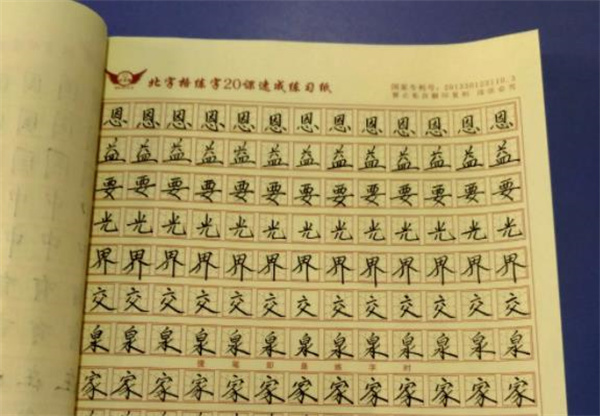 北字格练字20课速成练习纸
国家专利号:201330123110.3
禁止私自翻印复制 违者必究
恩恩恩恩恩恩恩恩恩恩恩恩恩
益益益益益益益益益益益益益
要要要要要要要要要要要要要
光光光光光光光光光光光光光
界界界界界界界界界界界界界
交交交交交交交交交交交交交
泉泉泉泉泉泉泉泉泉泉泉泉泉
提笔即是练字时
家家家家家家家家家家家家家